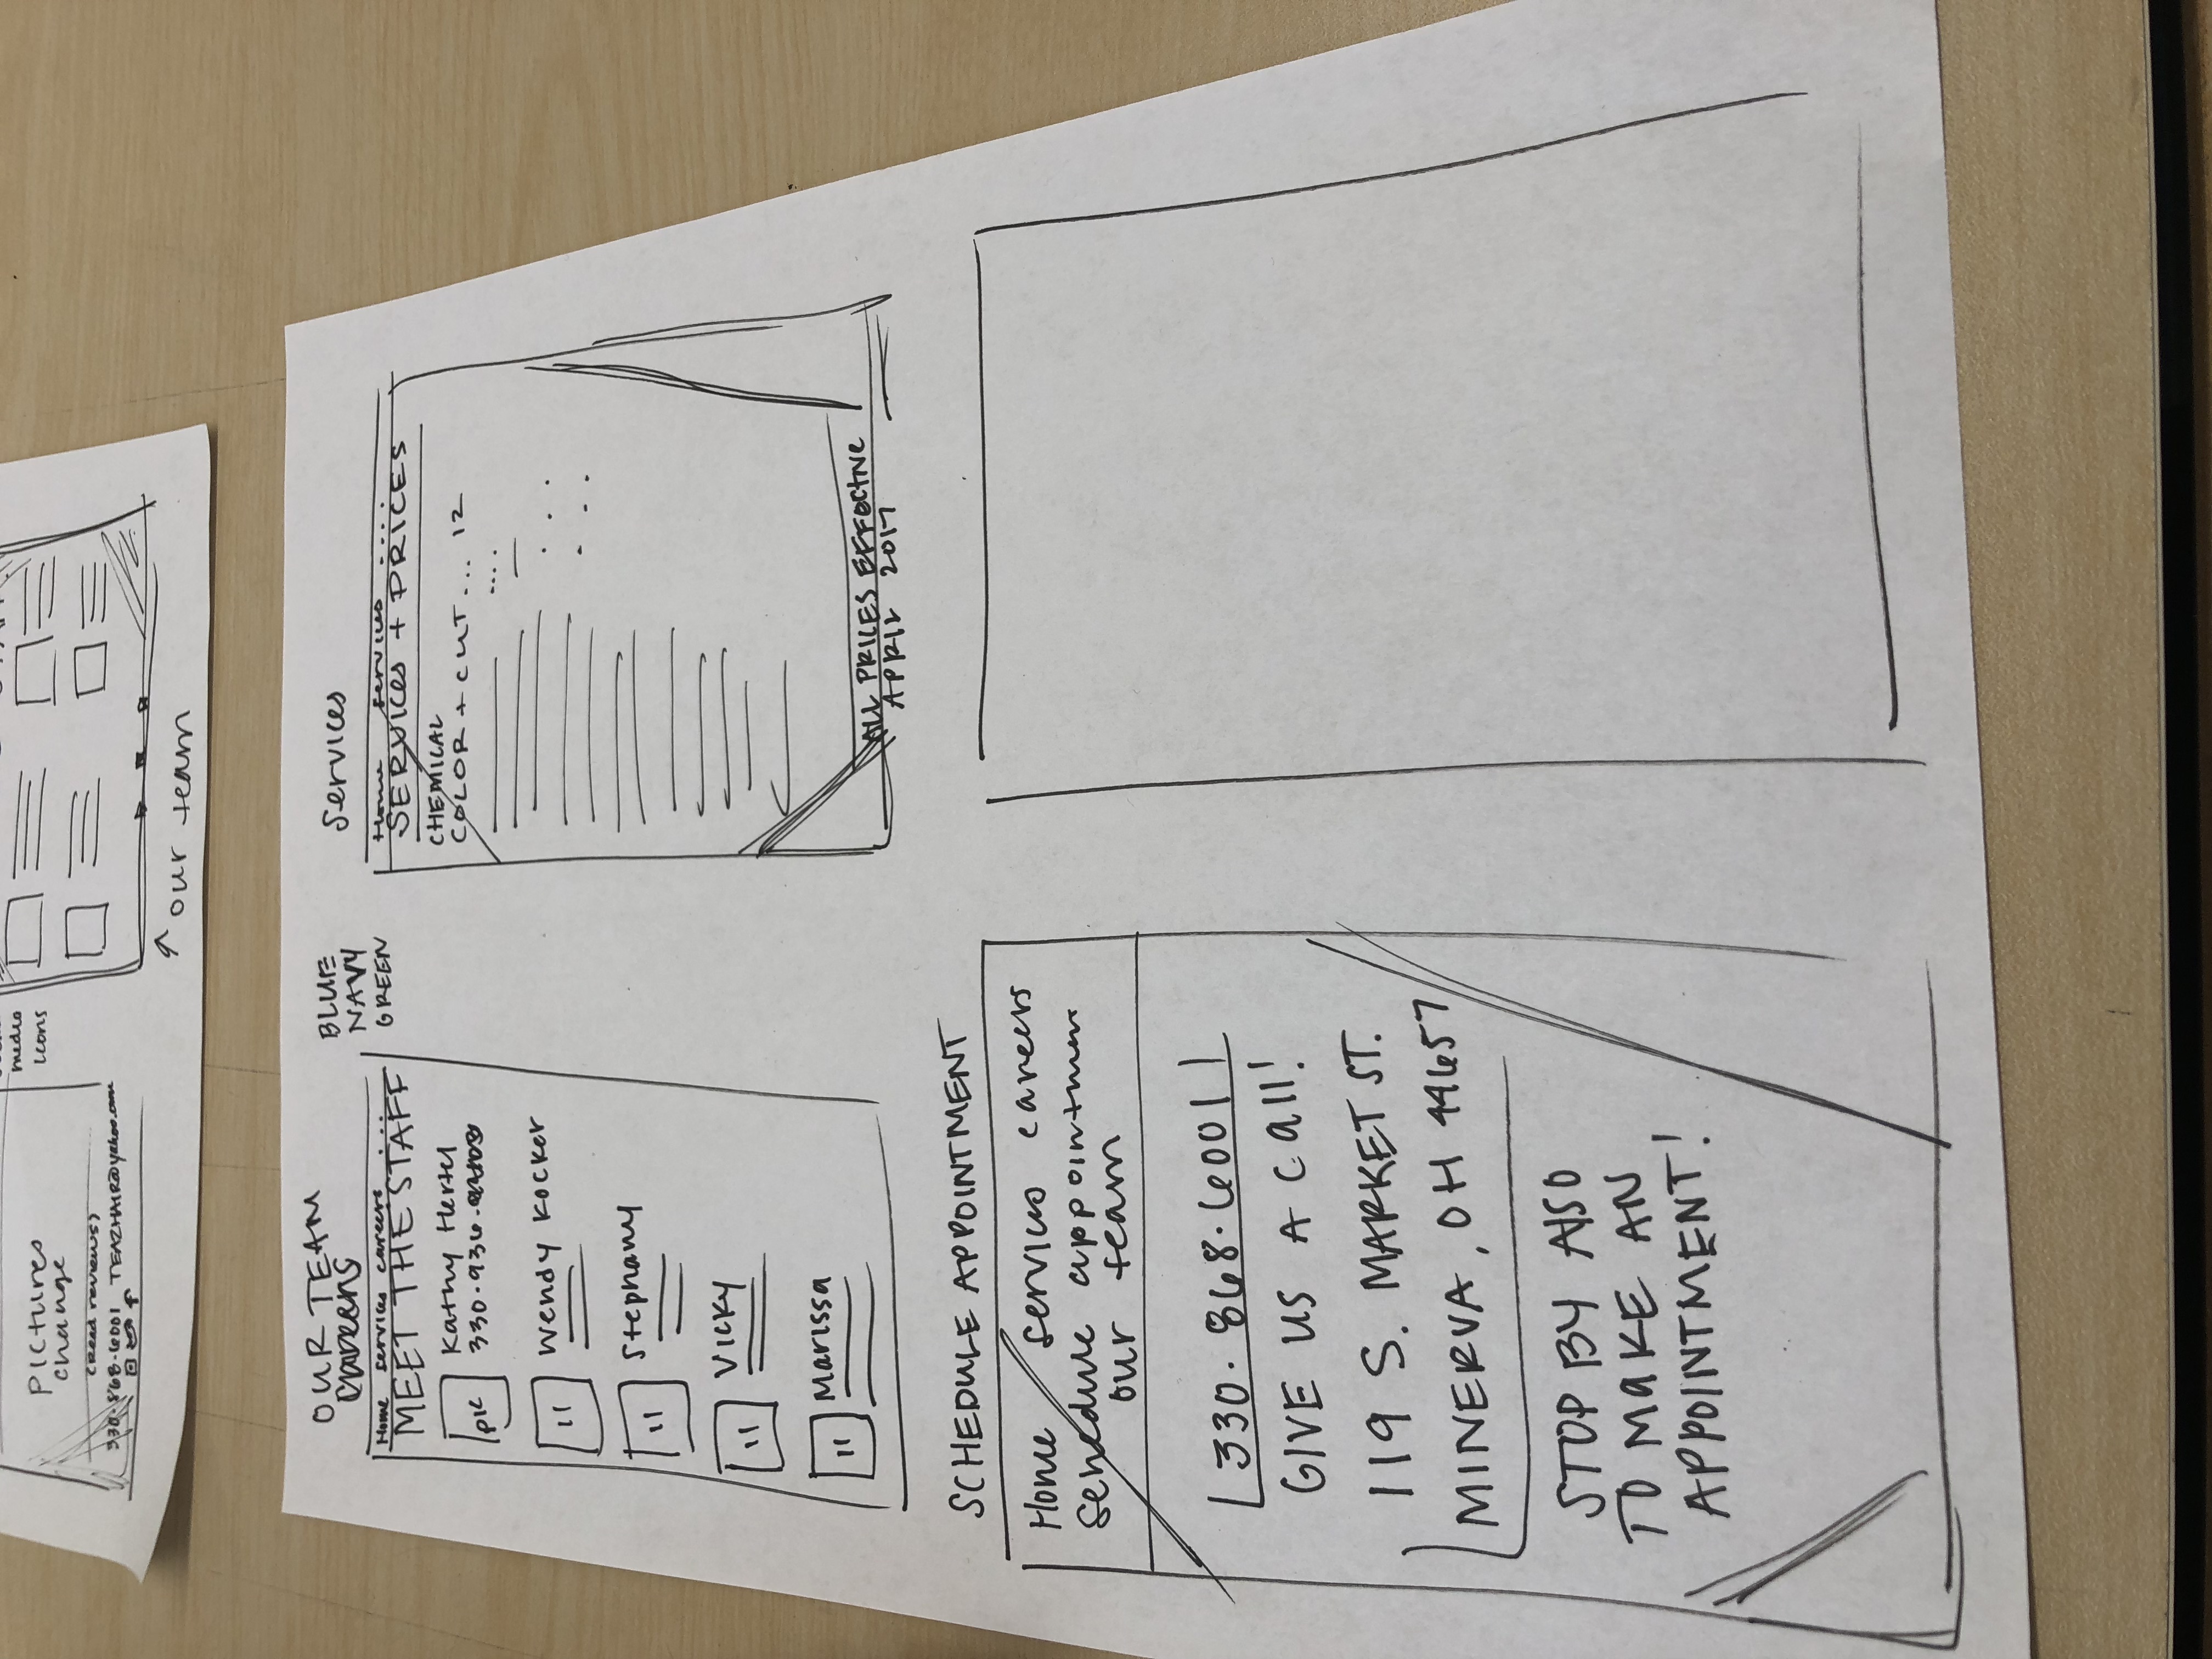 media
icons
pictures
change
(Read reviews)
330.868.6001 TEAZHAIR@yahoo.com
↑ our team
OUR TEAM
careers
Home services careers ...
MEET THE STAFF
pic
Kathy Hertel
330.936.
"
Wendy Kocker
"
Stephany
"
Vicky
"
Marissa
BLUE
NAVY
GREEN
Services
Home services ....
SERVICES + PRICES
CHEMICAL
COLOR + CUT ... 12
ALL PRICES EFFECTIVE
APRIL 2017
SCHEDULE APPOINTMENT
Home services careers
schedule appointment
our team
330.868.6001
GIVE US A Call!
119 S. MARKET ST.
MINERVA, OH 44657
STOP BY AlSO
TO MaKE AN
APPOINTMENT!